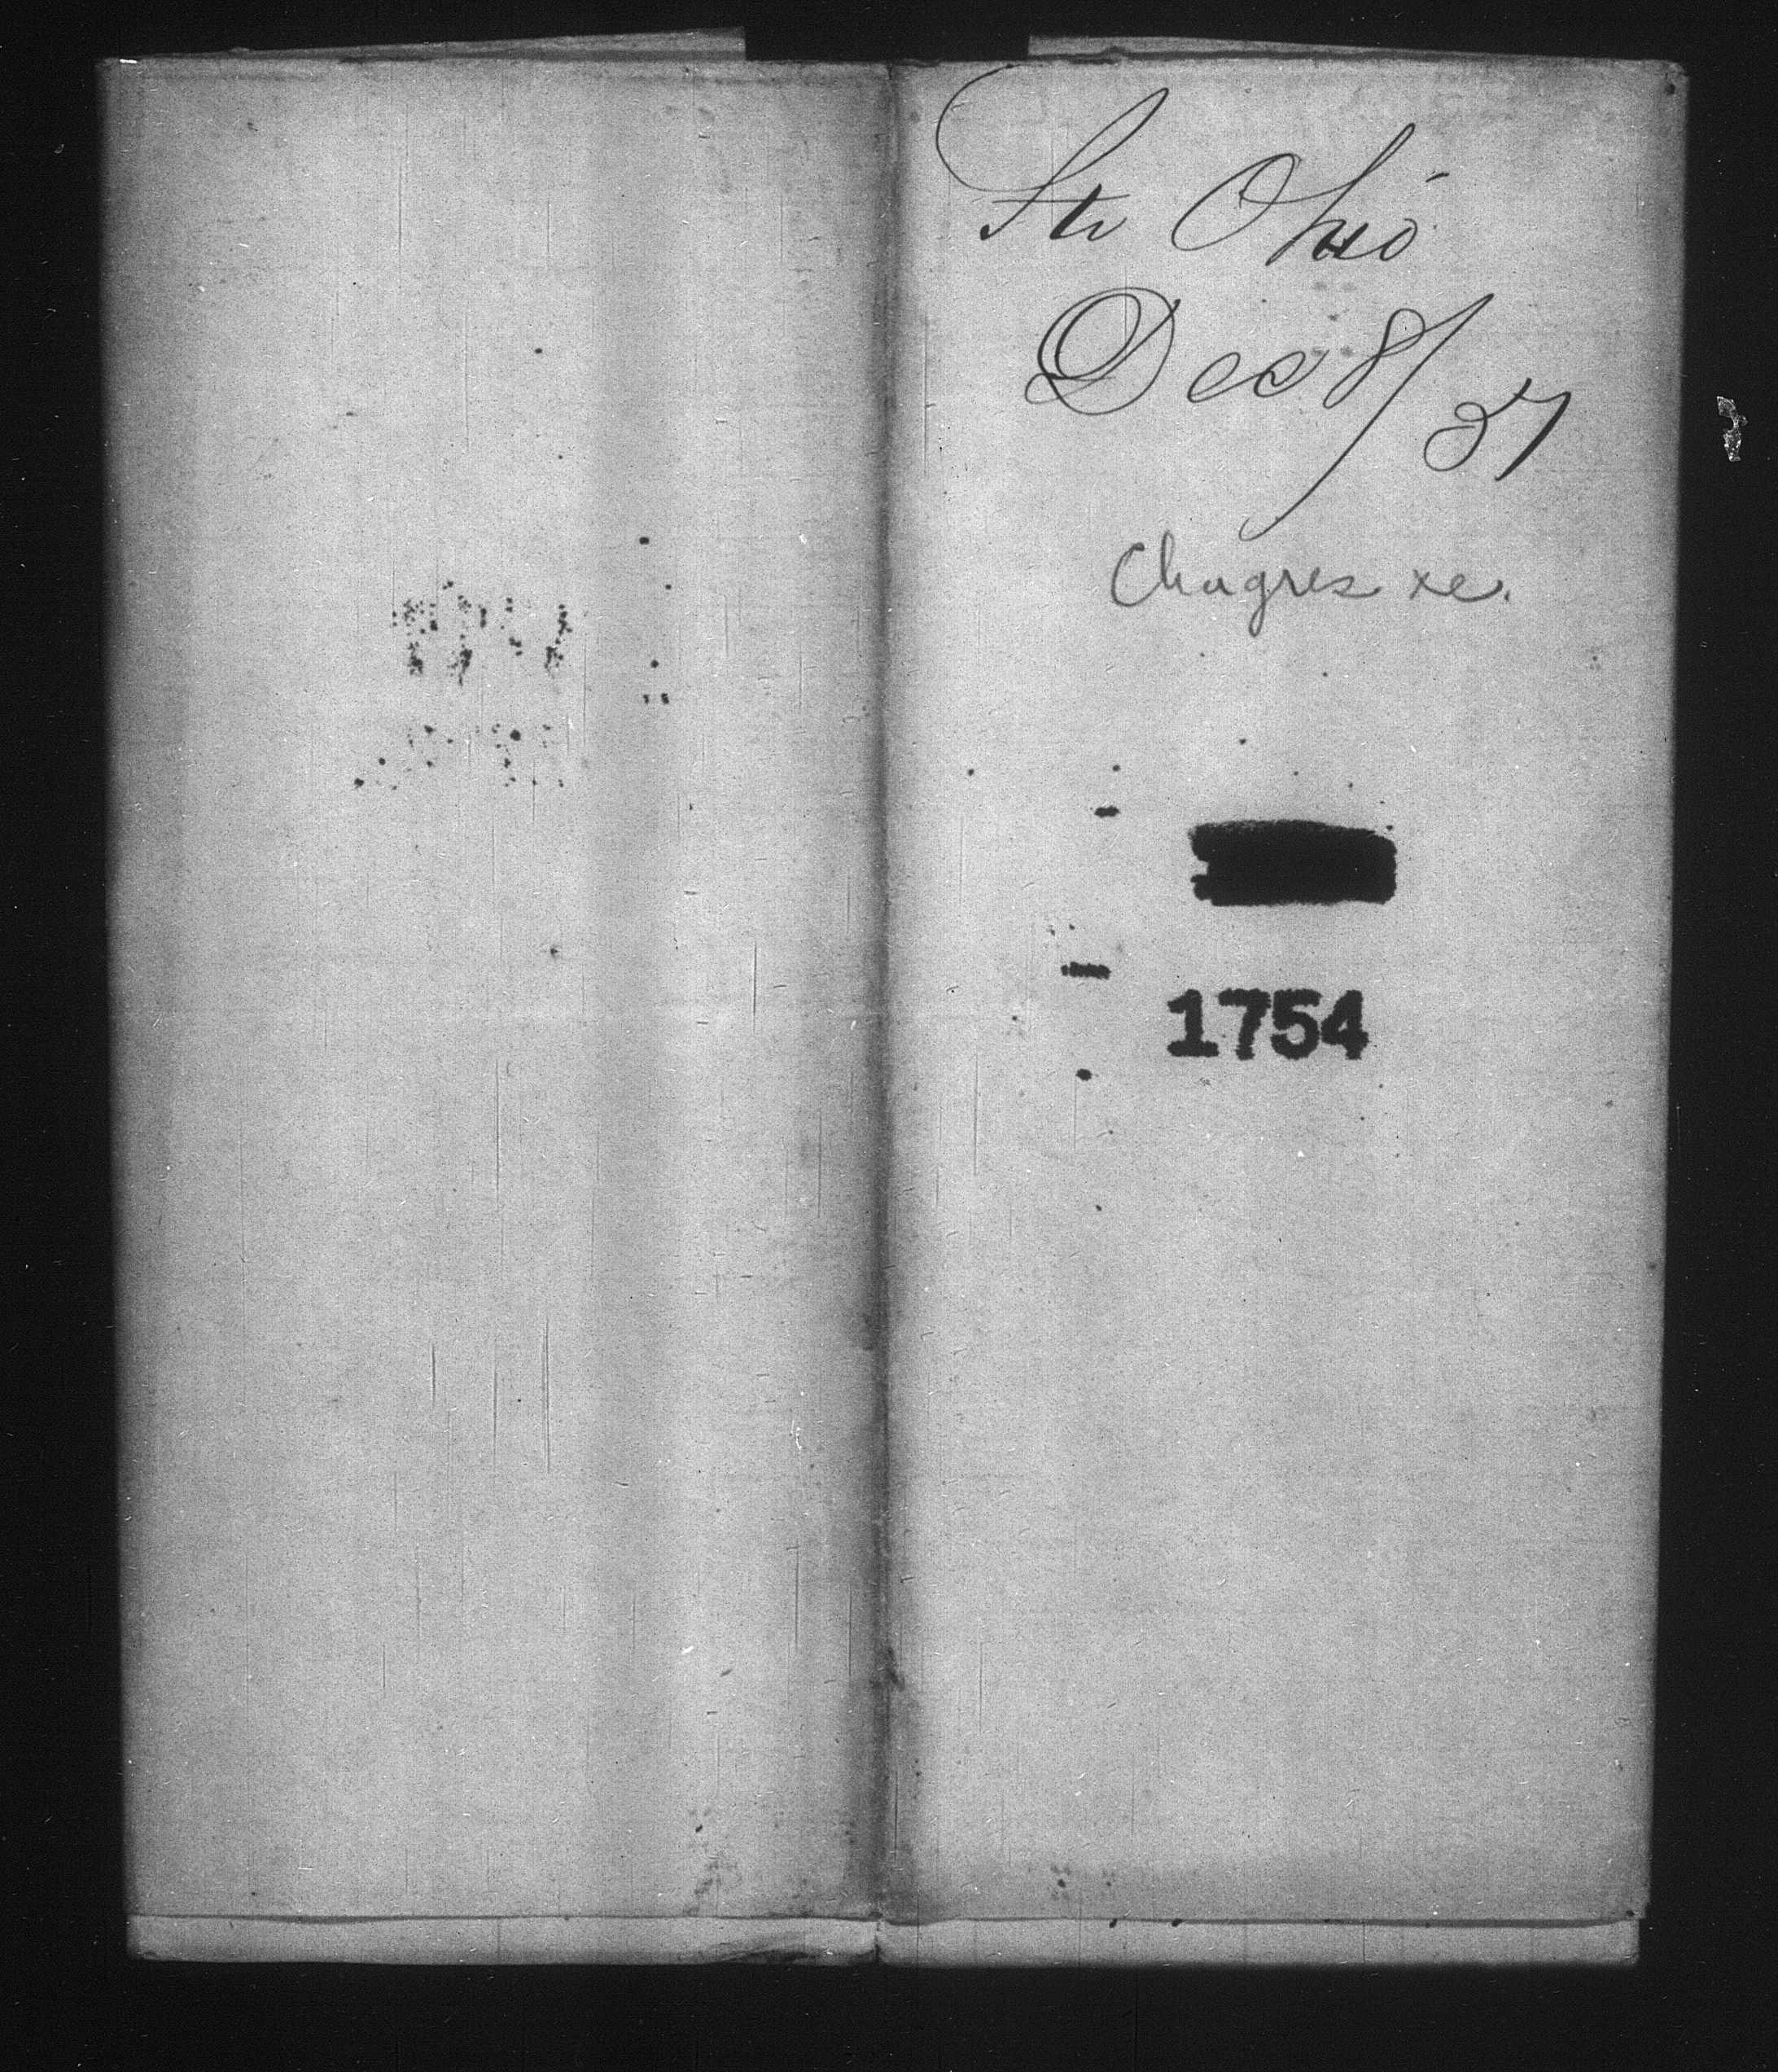 Str Ohio
Dec 8/51
Chagres xc.
1754